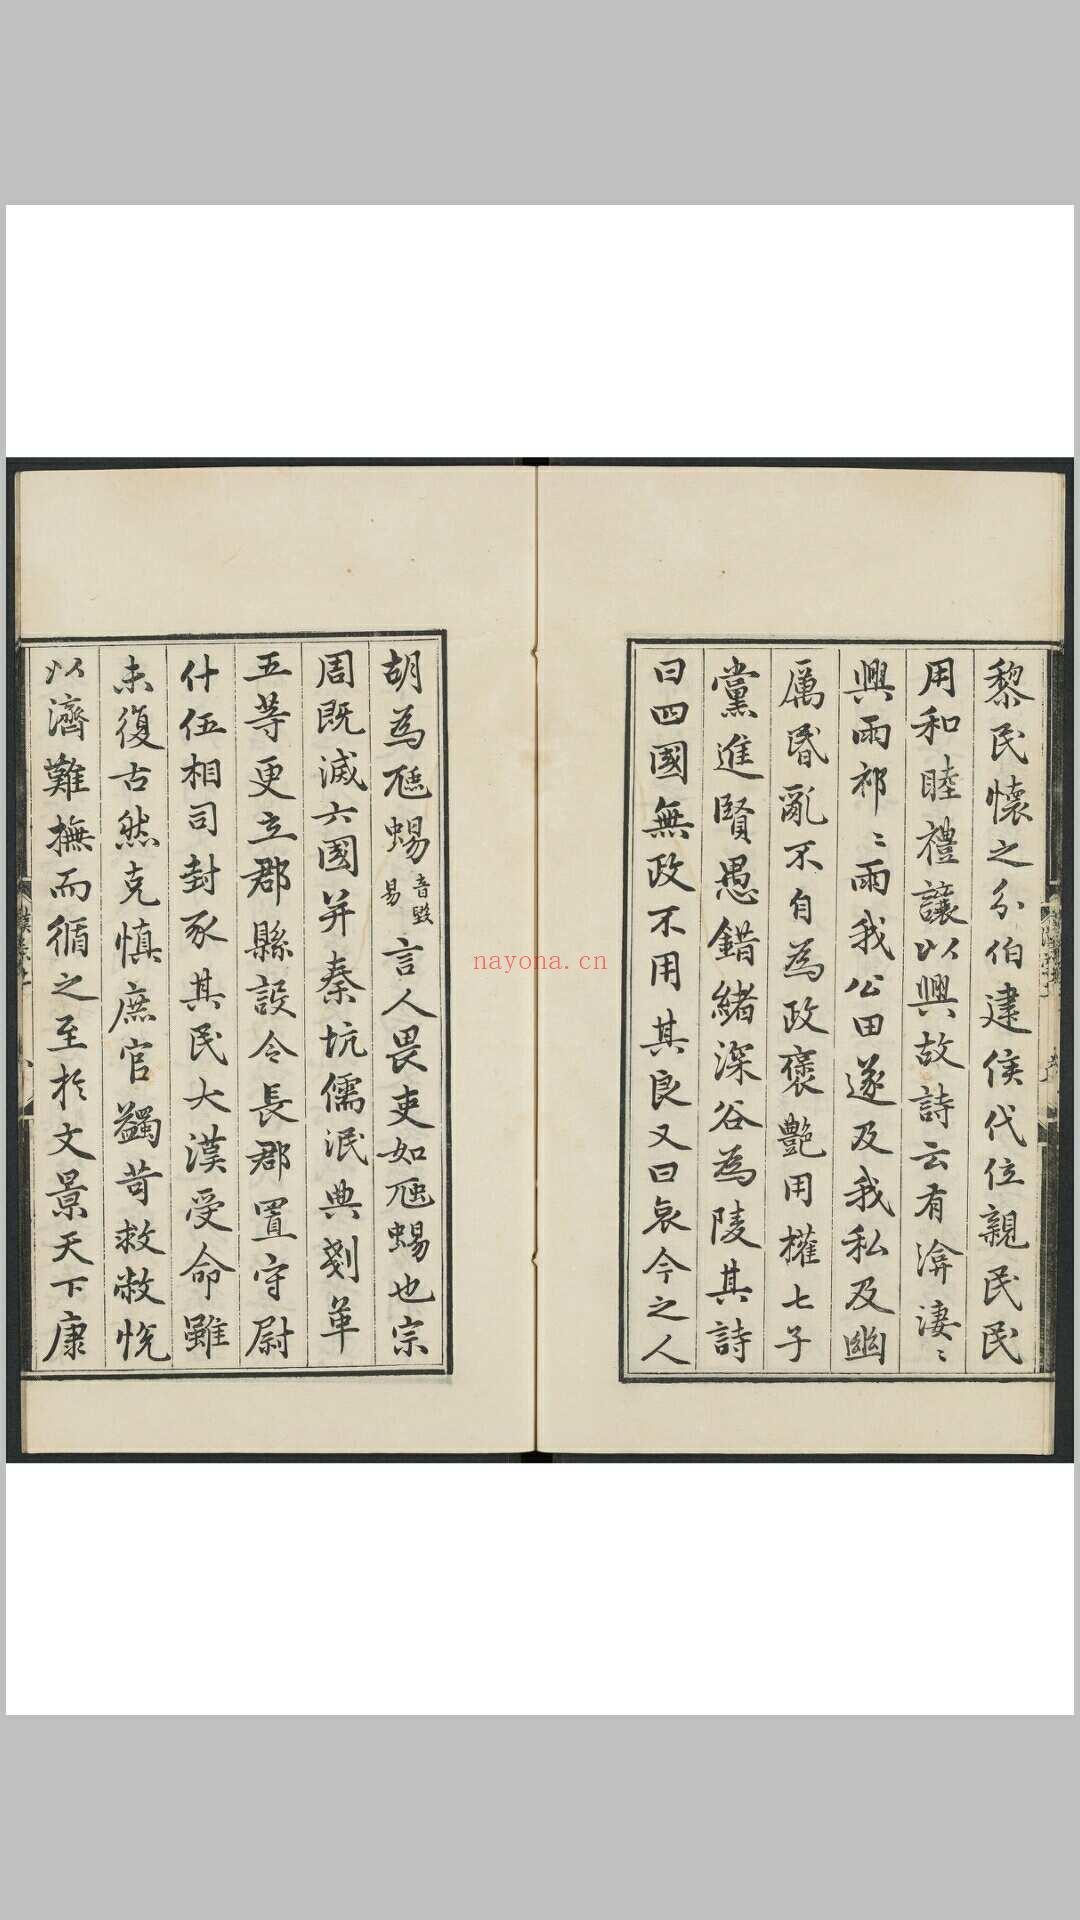 黎民懷之分伯建侯代位親民民
用和睦禮讓以興故詩云有渰淒〻
興雨祁〻雨我公田遂及我私及幽
厲昬亂不自為政褒艷用權七子
黨進賢愚錯緒深谷為陵其詩
曰四國無政不用其良又曰哀今之人
胡為虺蜴音毀易言人畏吏如虺蜴也宗
周既滅六國并秦坑儒泯典剗革
五等更立郡縣設令長郡置守尉
什伍相司封豕其民大漢受命雖
未復古然克慎庶官蠲苛救敝悅
以濟難撫而循之至於文景天下康
nayona.cn